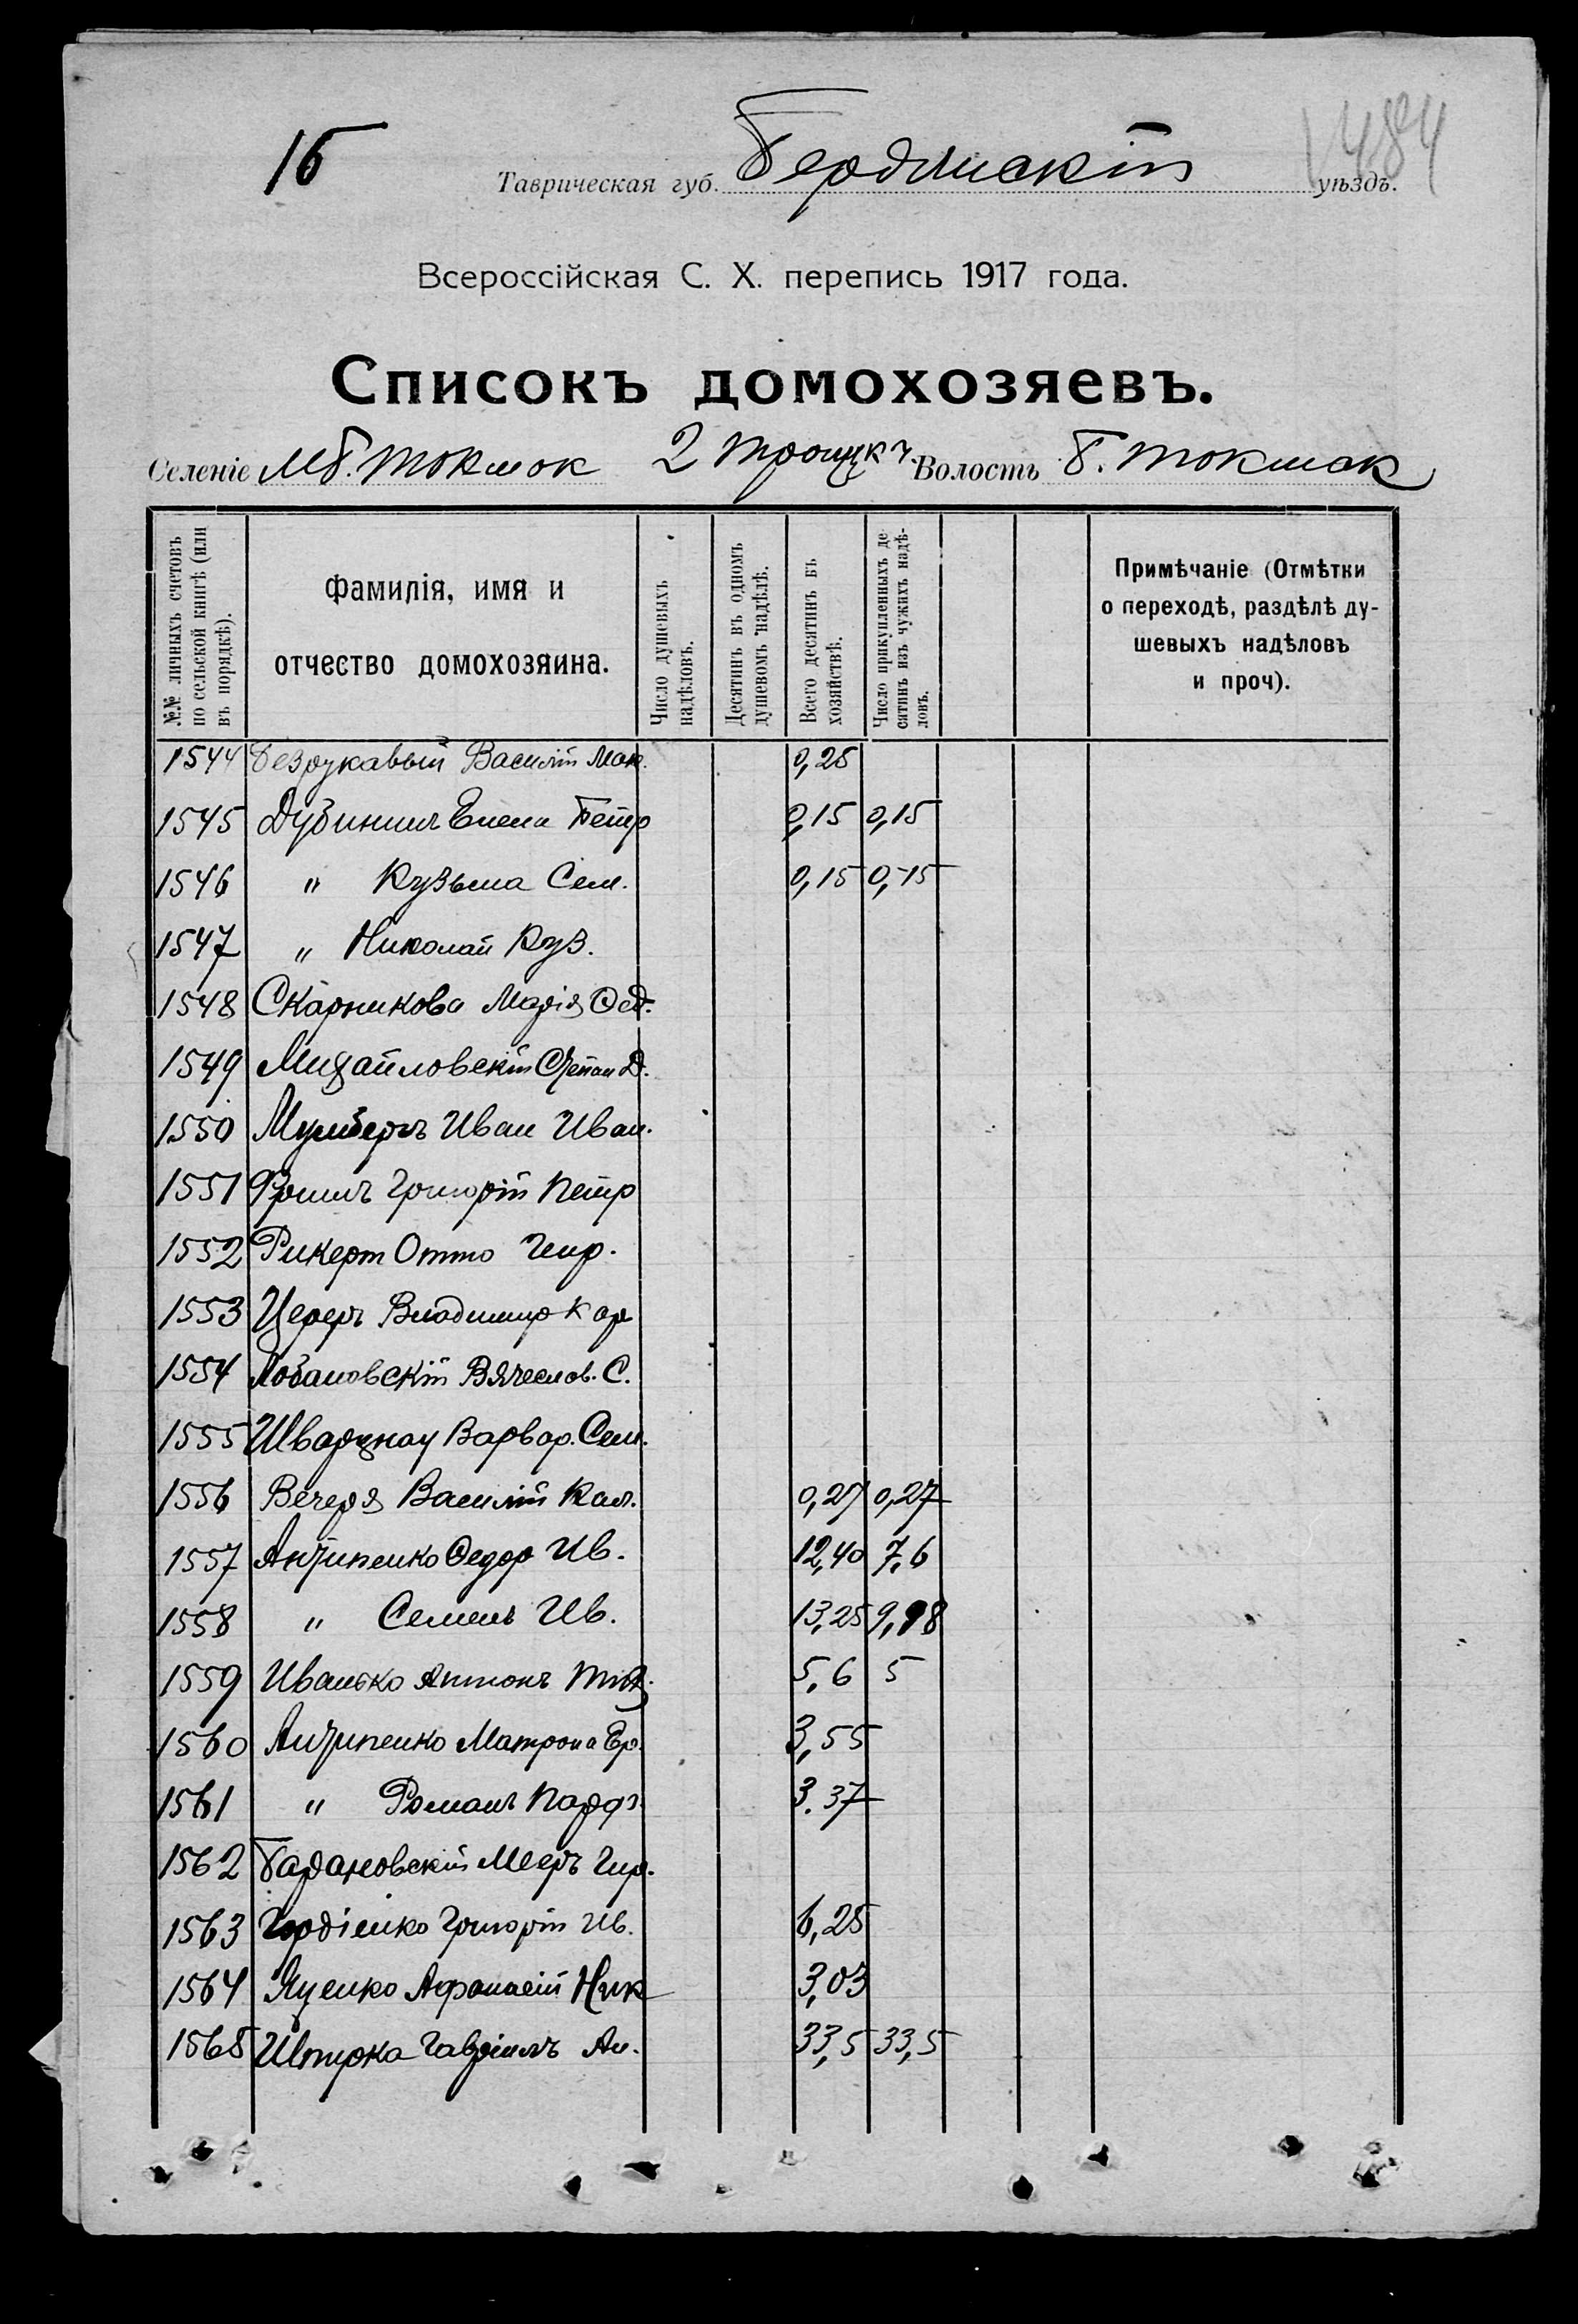 16
484
Таврическая губ. Бердянскій уѣздъ.
Всероссійская С. Х. перепись 1917 года.
Списокъ домохозяевъ.
Селеніе Мб. Токмок 2 Троицк ч. Волость Б. Токмак
№№ личныхъ счетовъ по сельской книгѣ (или въ порядкѣ).
Фамилія, имя и отчество домохозяина.
Число душевыхъ надѣловъ.
Десятинъ въ одномъ душевомъ надѣлѣ.
Всего десятинъ бъ хозяйствѣ.
Число прикупленныхъ десятинъ изъ чужихъ надѣловъ.
Примѣчаніе (Отмѣтки о переходѣ, раздѣлѣ душевыхъ надѣловъ и проч).
1544 Безрукавый Василій Мак. 0,25
1545 Дубининъ Елена Петр 0,15 0,15
1546 " Кузьма Сем. 0,15 0,15
1547 " Николай Куз.
1548 Скарникова Марія Фед.
1549 Михайловскій Степан Д.
1550 Иван Иван.
1551 Григорій Петр
1552 Рикерт Отто Генр.
1553 Владимир Кар
1554 Лобановскій Вячеслов. С.
1555 Шварцнау Варвар. Сем.
1556 Вечеря Василій Кал. 0,27 0,27
1557 Антипенко Федор Ив. 12,40 7,6
1558 " Семенъ Ив. 13,25 9,98
1559 Иванько Антонъ 5,6 5
1560 Антипенко Матрона Ер. 3,55
1561 " Романъ Парф. 3.37
1562 Барановскій Мееръ Гир.
1563 Гордіенко Григорій Ив. 6,25
1564 Яценко Афанасій Ник 3,03
1565 Шпирка Гавріилъ Ан. 33,5 33,5